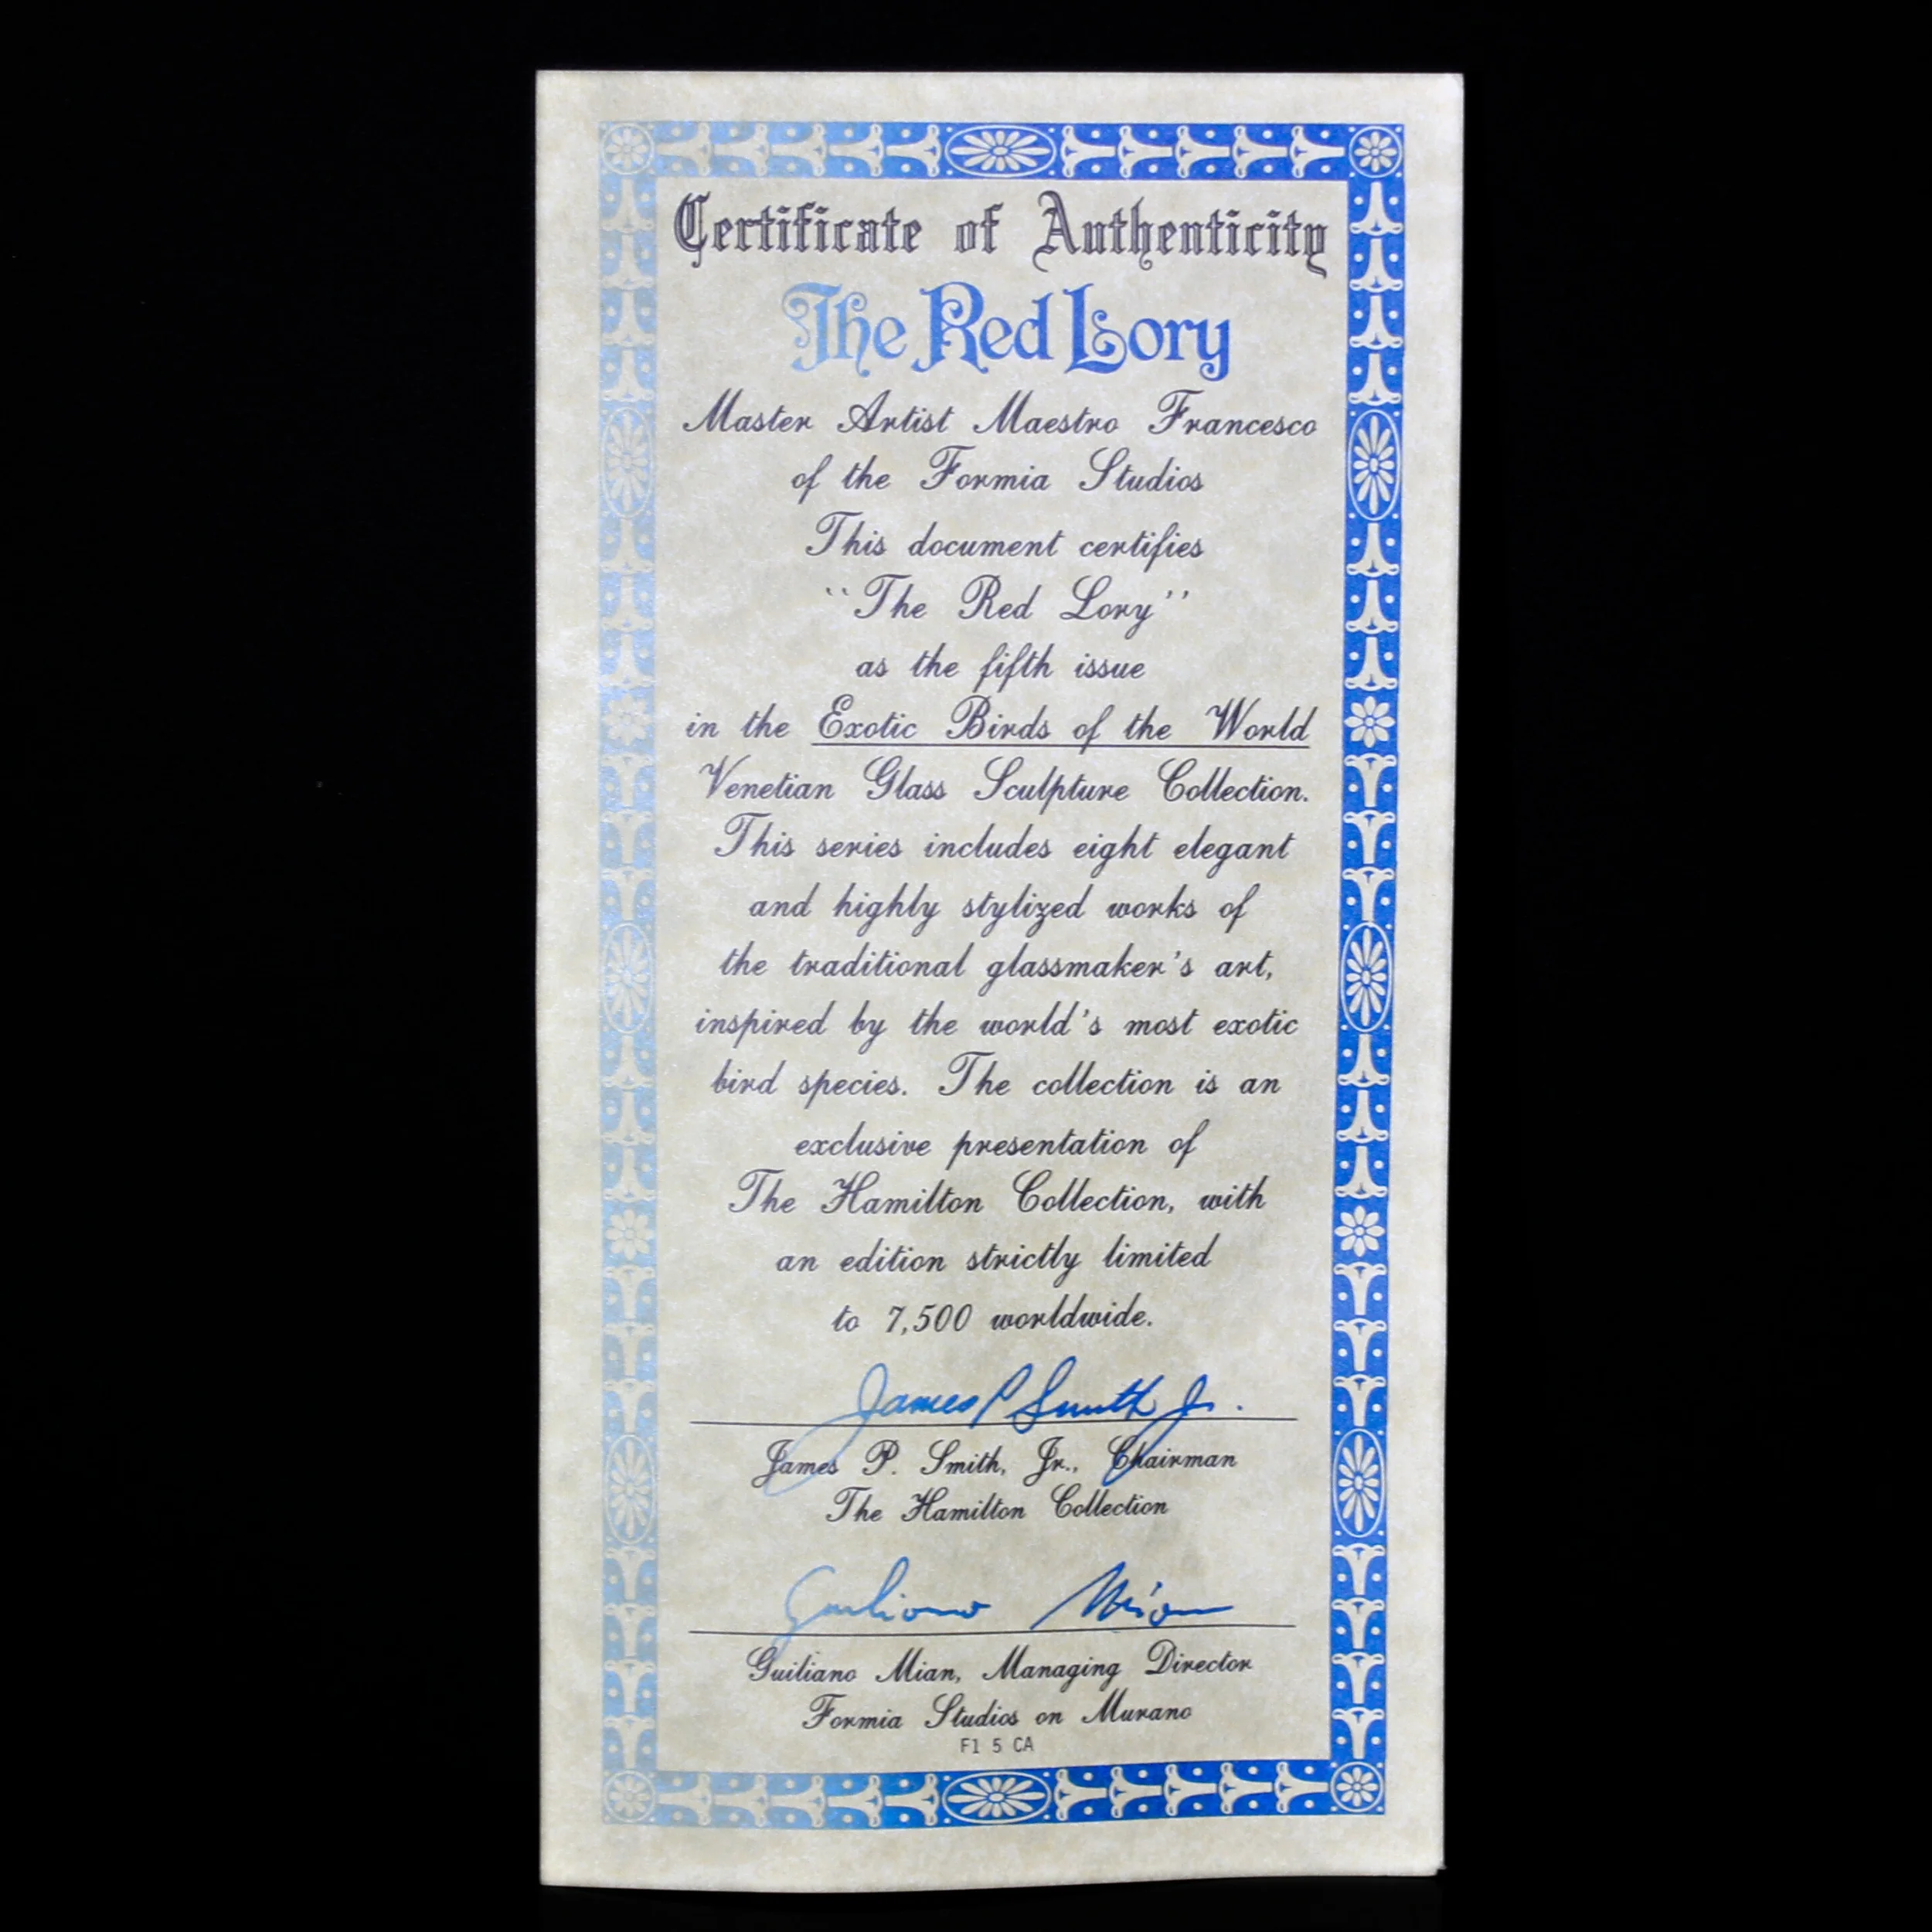 Certificate of Authenticity
The Red Lory
Master Artist Maestro Francesco
of the Formia Studios
This document certifies
“The Red Lory”
as the fifth issue
in the Exotic Birds of the World
Venetian Glass Sculpture Collection.
This series includes eight elegant
and highly stylized works of
the traditional glassmaker's art,
inspired by the world's most exotic
bird species. The collection is an
exclusive presentation of
The Hamilton Collection, with
an edition strictly limited
to 7,500 worldwide.
James P Smith Jr.
James P. Smith, Jr., Chairman
The Hamilton Collection
Guiliano Mian
Guiliano Mian, Managing Director
Formia Studios on Murano
F1 5 CA